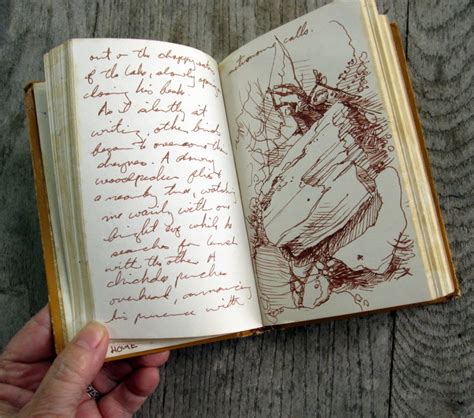 out on the choppy water
of the lake, slowly
closing his beak.
As I silently sit
writing, other birds
began to overcome their
shyness. A downy
woodpecker flits t
a nearby tree, watchi
me warily with one
bright eye while he
searches for lunch
with the other. A
chickadee perches
overhead, announcing
his presence with
HOME
calls.